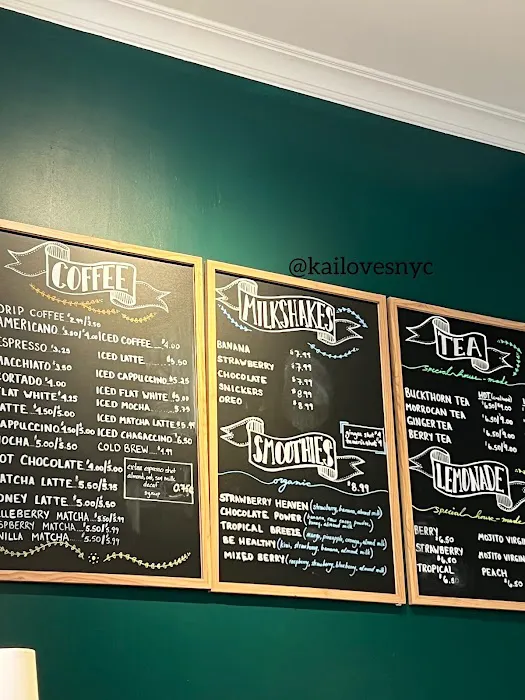 @kailovesnyc
COFFEE
DRIP COFFEE $2.99/3.50
AMERICANO $3.00/4.00
ESPRESSO $3.25
MACCHIATO $3.50
CORTADO $4.00
FLAT WHITE $4.25
LATTE $4.50/5.00
CAPPUCCINO $4.50/5.00
MOCHA $5.00/5.50
HOT CHOCOLATE $4.00/5.00
MATCHA LATTE $5.50/5.75
HONEY LATTE $5.00/5.50
BERRY MATCHA 5.50/5.99
VANILLA MATCHA 5.50/5.99
ICED COFFEE $4.00
ICED LATTE $5.50
ICED CAPPUCCINO $5.25
ICED FLAT WHITE $5.00
ICED MOCHA 5.75
ICED MATCHA LATTE
ICED CHAGACCINO $6.50
COLD BREW $4.99
extra espresso shot
almond, oat, soy milk
decaf
syrup
0.75¢
MILKSHAKES
BANANA $7.99
STRAWBERRY $7.99
CHOCOLATE $7.99
SNICKERS $8.99
OREO $8.99
ginger shot $4
SMOOTHIES
organic
$8.99
STRAWBERRY HEAVEN (strawberry, banana, almond milk)
CHOCOLATE POWER
TROPICAL BREEZE (mango, pineapple, orange, almond milk)
BE HEALTHY (kiwi, strawberry, banana, almond milk)
MIXED BERRY (raspberry, strawberry, blueberry, almond milk)
TEA
special house-made
BUCKTHORN TEA
MORROCAN TEA 6.50/9.00
GINGER TEA 6.50/9.00
BERRY TEA 6.50/9.00
LEMONADE
special house-made
BERRY $6.50
STRAWBERRY $6.50
TROPICAL
MOJITO VIRGIN
MOJITO VIRGIN
PEACH $6.50